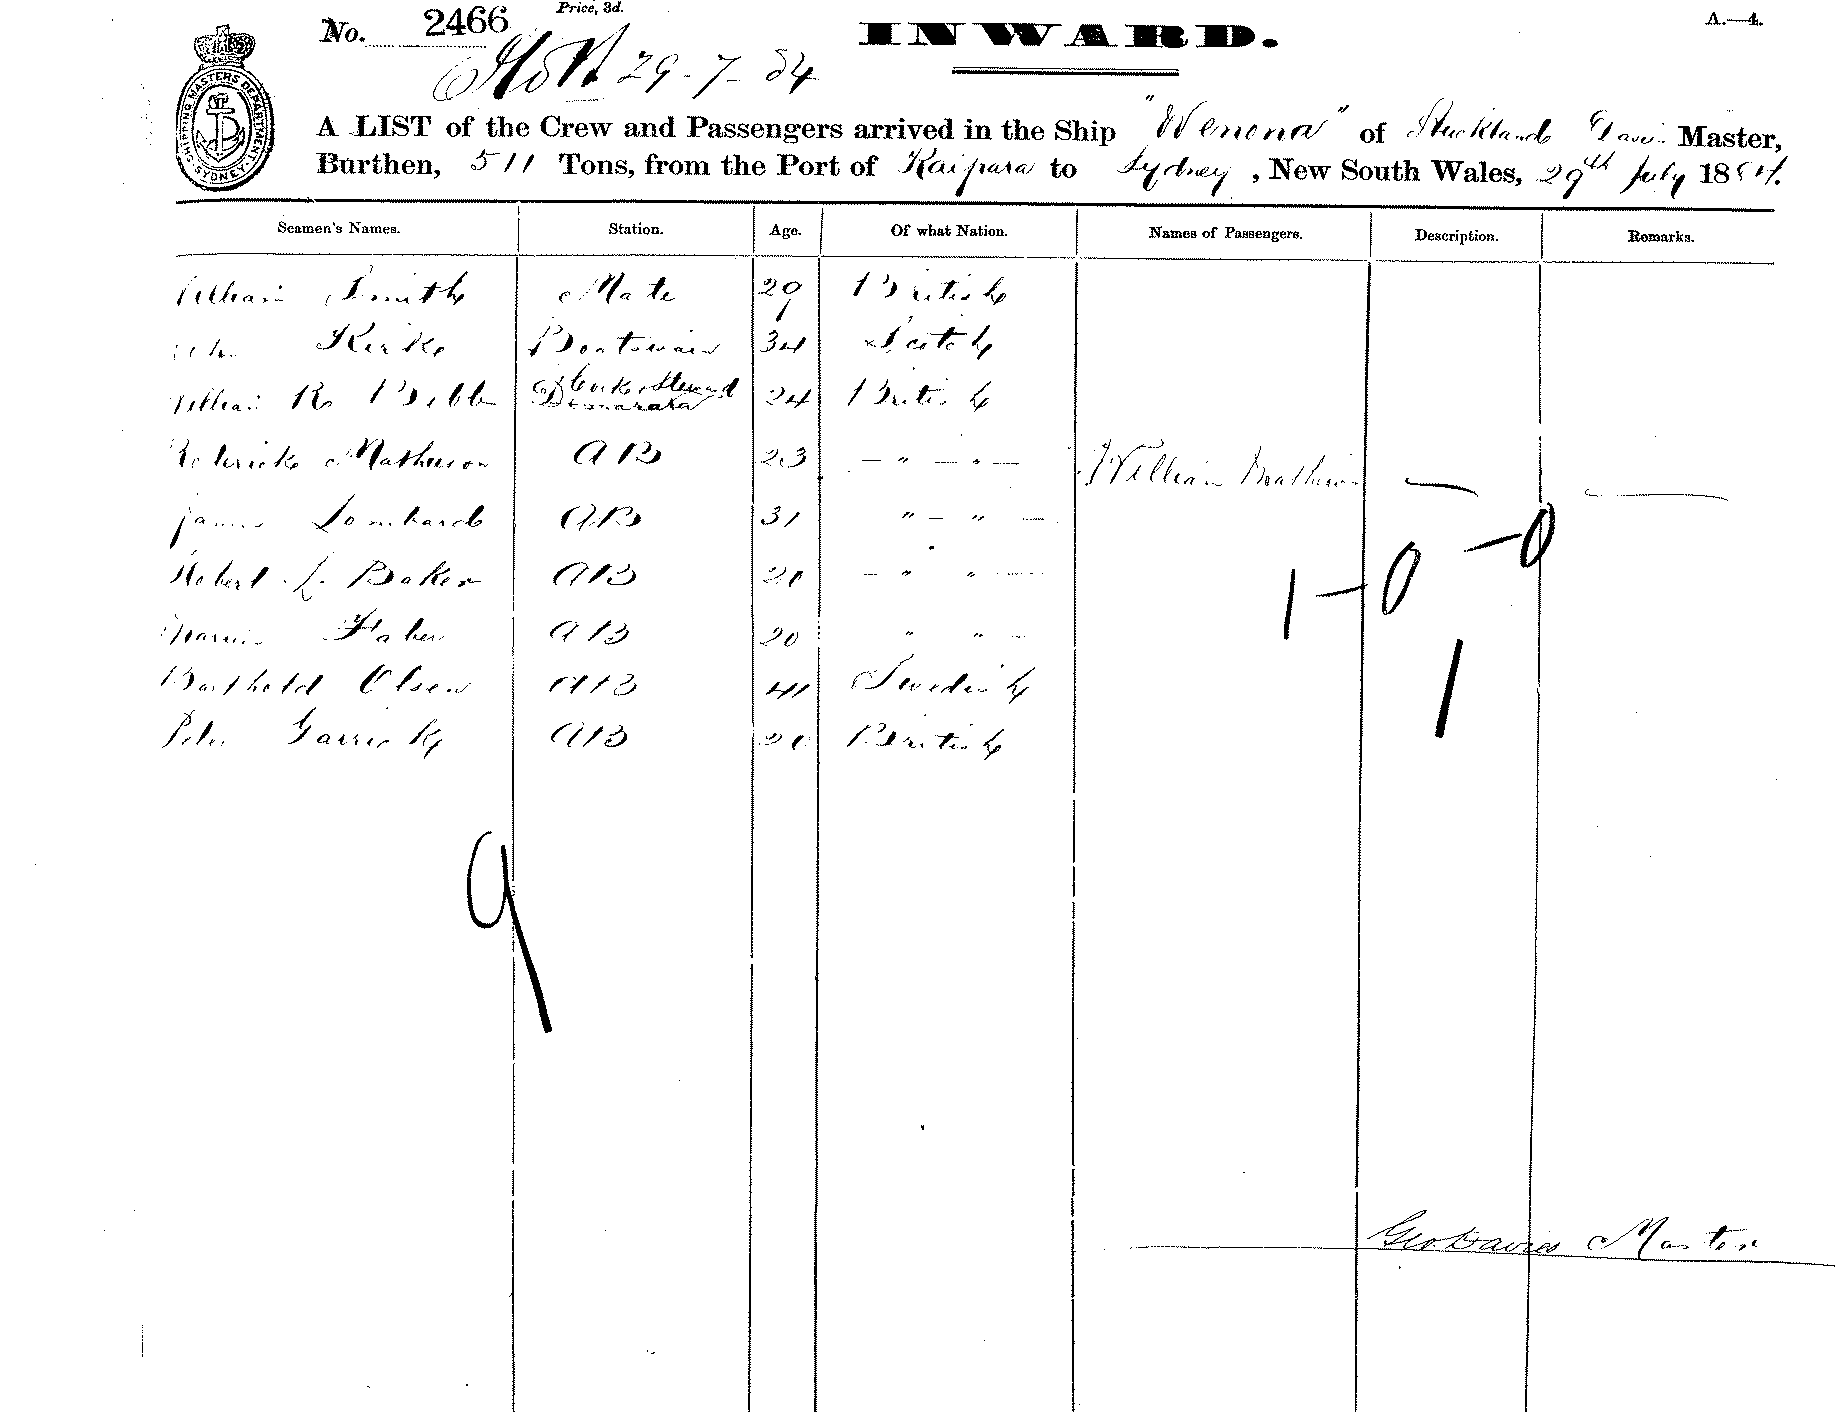 No. 2466 Price, 3d. INWARD. A.—4.
29-7-84
SHIPPING MASTERS DEPARTMENT SYDNEY
A LIST of the Crew and Passengers arrived in the Ship "Wenona" of Davis Master,
Burthen, 511 Tons, from the Port of Kaipara to Sydney, New South Wales, 29th July 1884.
Seamen's Names. Station. Age. Of what Nation. Names of Passengers. Description. Remarks.
William Smith Mate 29 British
John Kirke Boatswain 34 Scotch
William R Bibb Cook & Steward 24 British
Demarara
Roderick Matheson AB 23 — " — " — William — —
James Lombard AB 31 " — " —
Robert L. Baker AB 21 — " " —
Faber AB 20 " " —
Barthold Olsen AB 41 Swedish
Peter Garrick AB British
1 — 0 — 0
1
9
Geo Davies Master